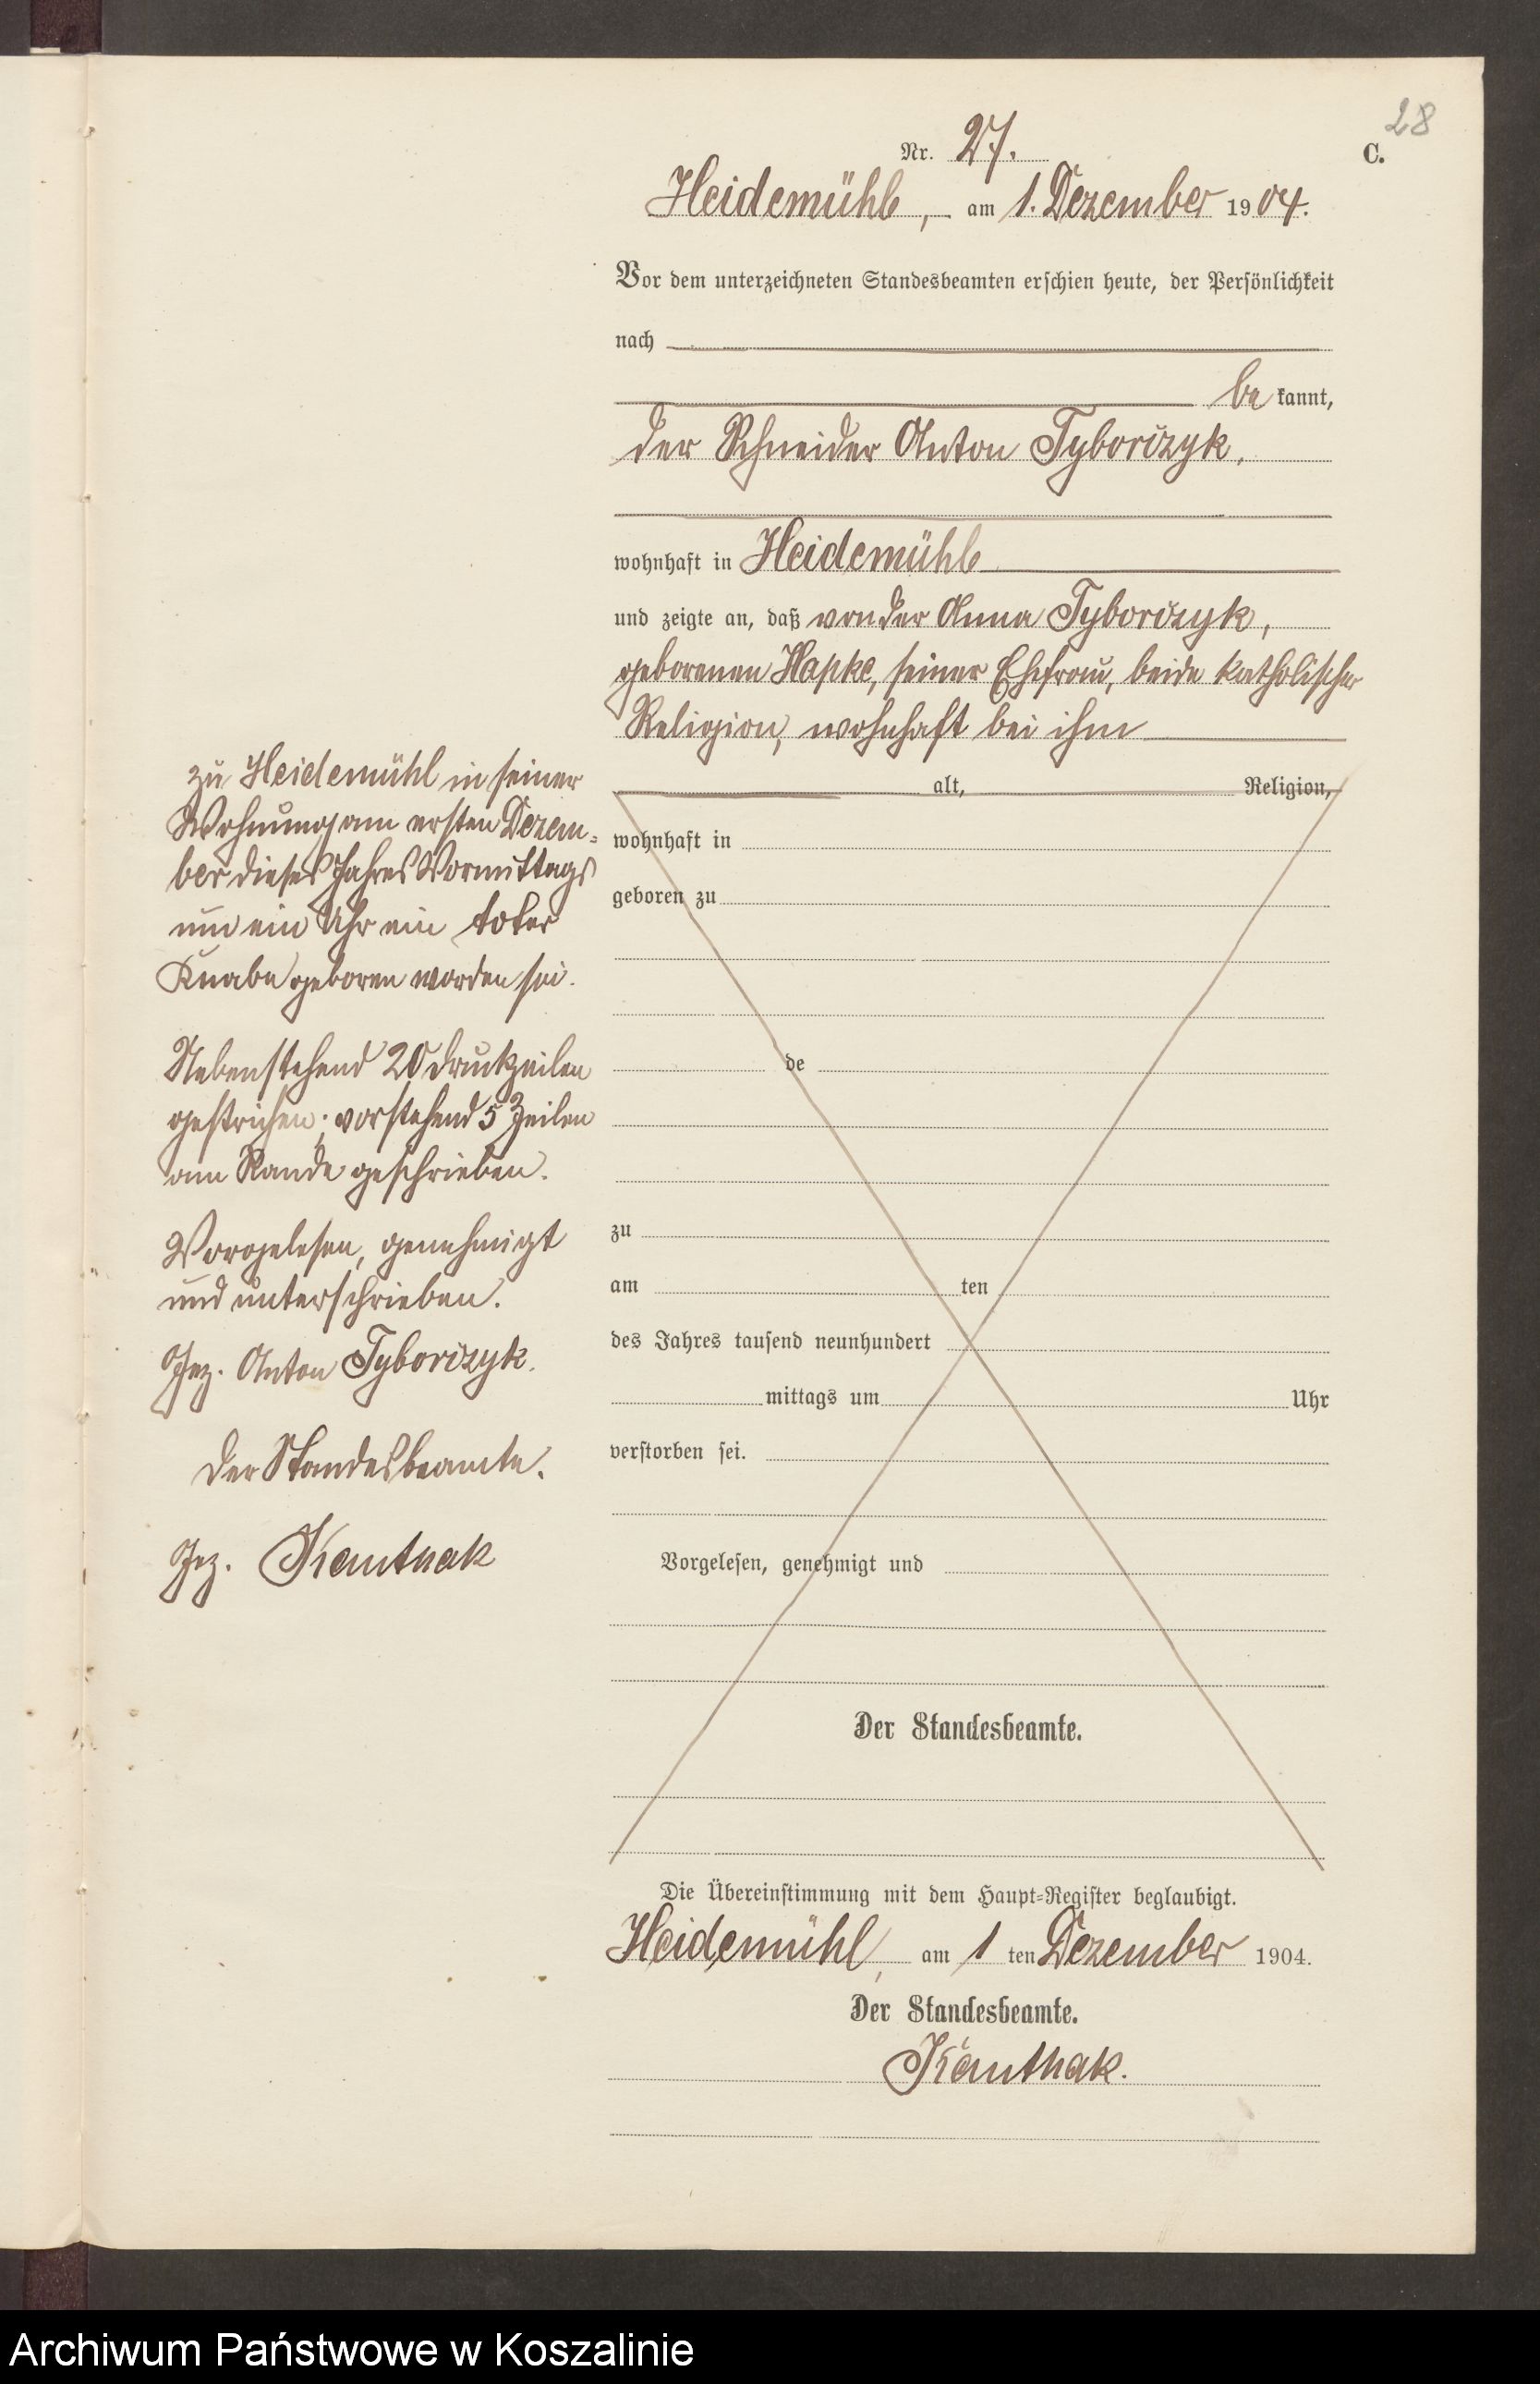 28
C.
Nr. 27.
Heidemühl, am 1. Dezember 1904.
Vor dem unterzeichneten Standesbeamten erschien heute, der Persönlichkeit
nach
be kannt,
der Schneider Anton Tyborczyk,
wohnhaft in Heidemühl
und zeigte an, daß von der Anna Tyborczyk,
geborenen Hapke, seiner Ehefrau, beide katholischer
Religion, wohnhaft bei ihm
zu Heidemühl in seiner
Wohnung am ersten Dezem-
ber dieses Jahres Vormittags
um ein Uhr ein toter
Knabe geboren worden sei.
Nebenstehend 20 Druckzeilen
gestrichen; vorstehend 5 Zeilen
am Rande geschrieben.
Vorgelesen, genehmigt
und unterschrieben.
Gez. Anton Tyborczyk.
Der Standesbeamte.
Gez. Kauthak
alt, Religion,
wohnhaft in
geboren zu
de
zu
am ten
des Jahres tausend neunhundert
mittags um Uhr
verstorben sei.
Vorgelesen, genehmigt und
Der Standesbeamte.
Die Übereinstimmung mit dem Haupt=Register beglaubigt.
Heidemühl, am 1 ten Dezember 1904.
Der Standesbeamte.
Kauthak.
Archiwum Państwowe w Koszalinie